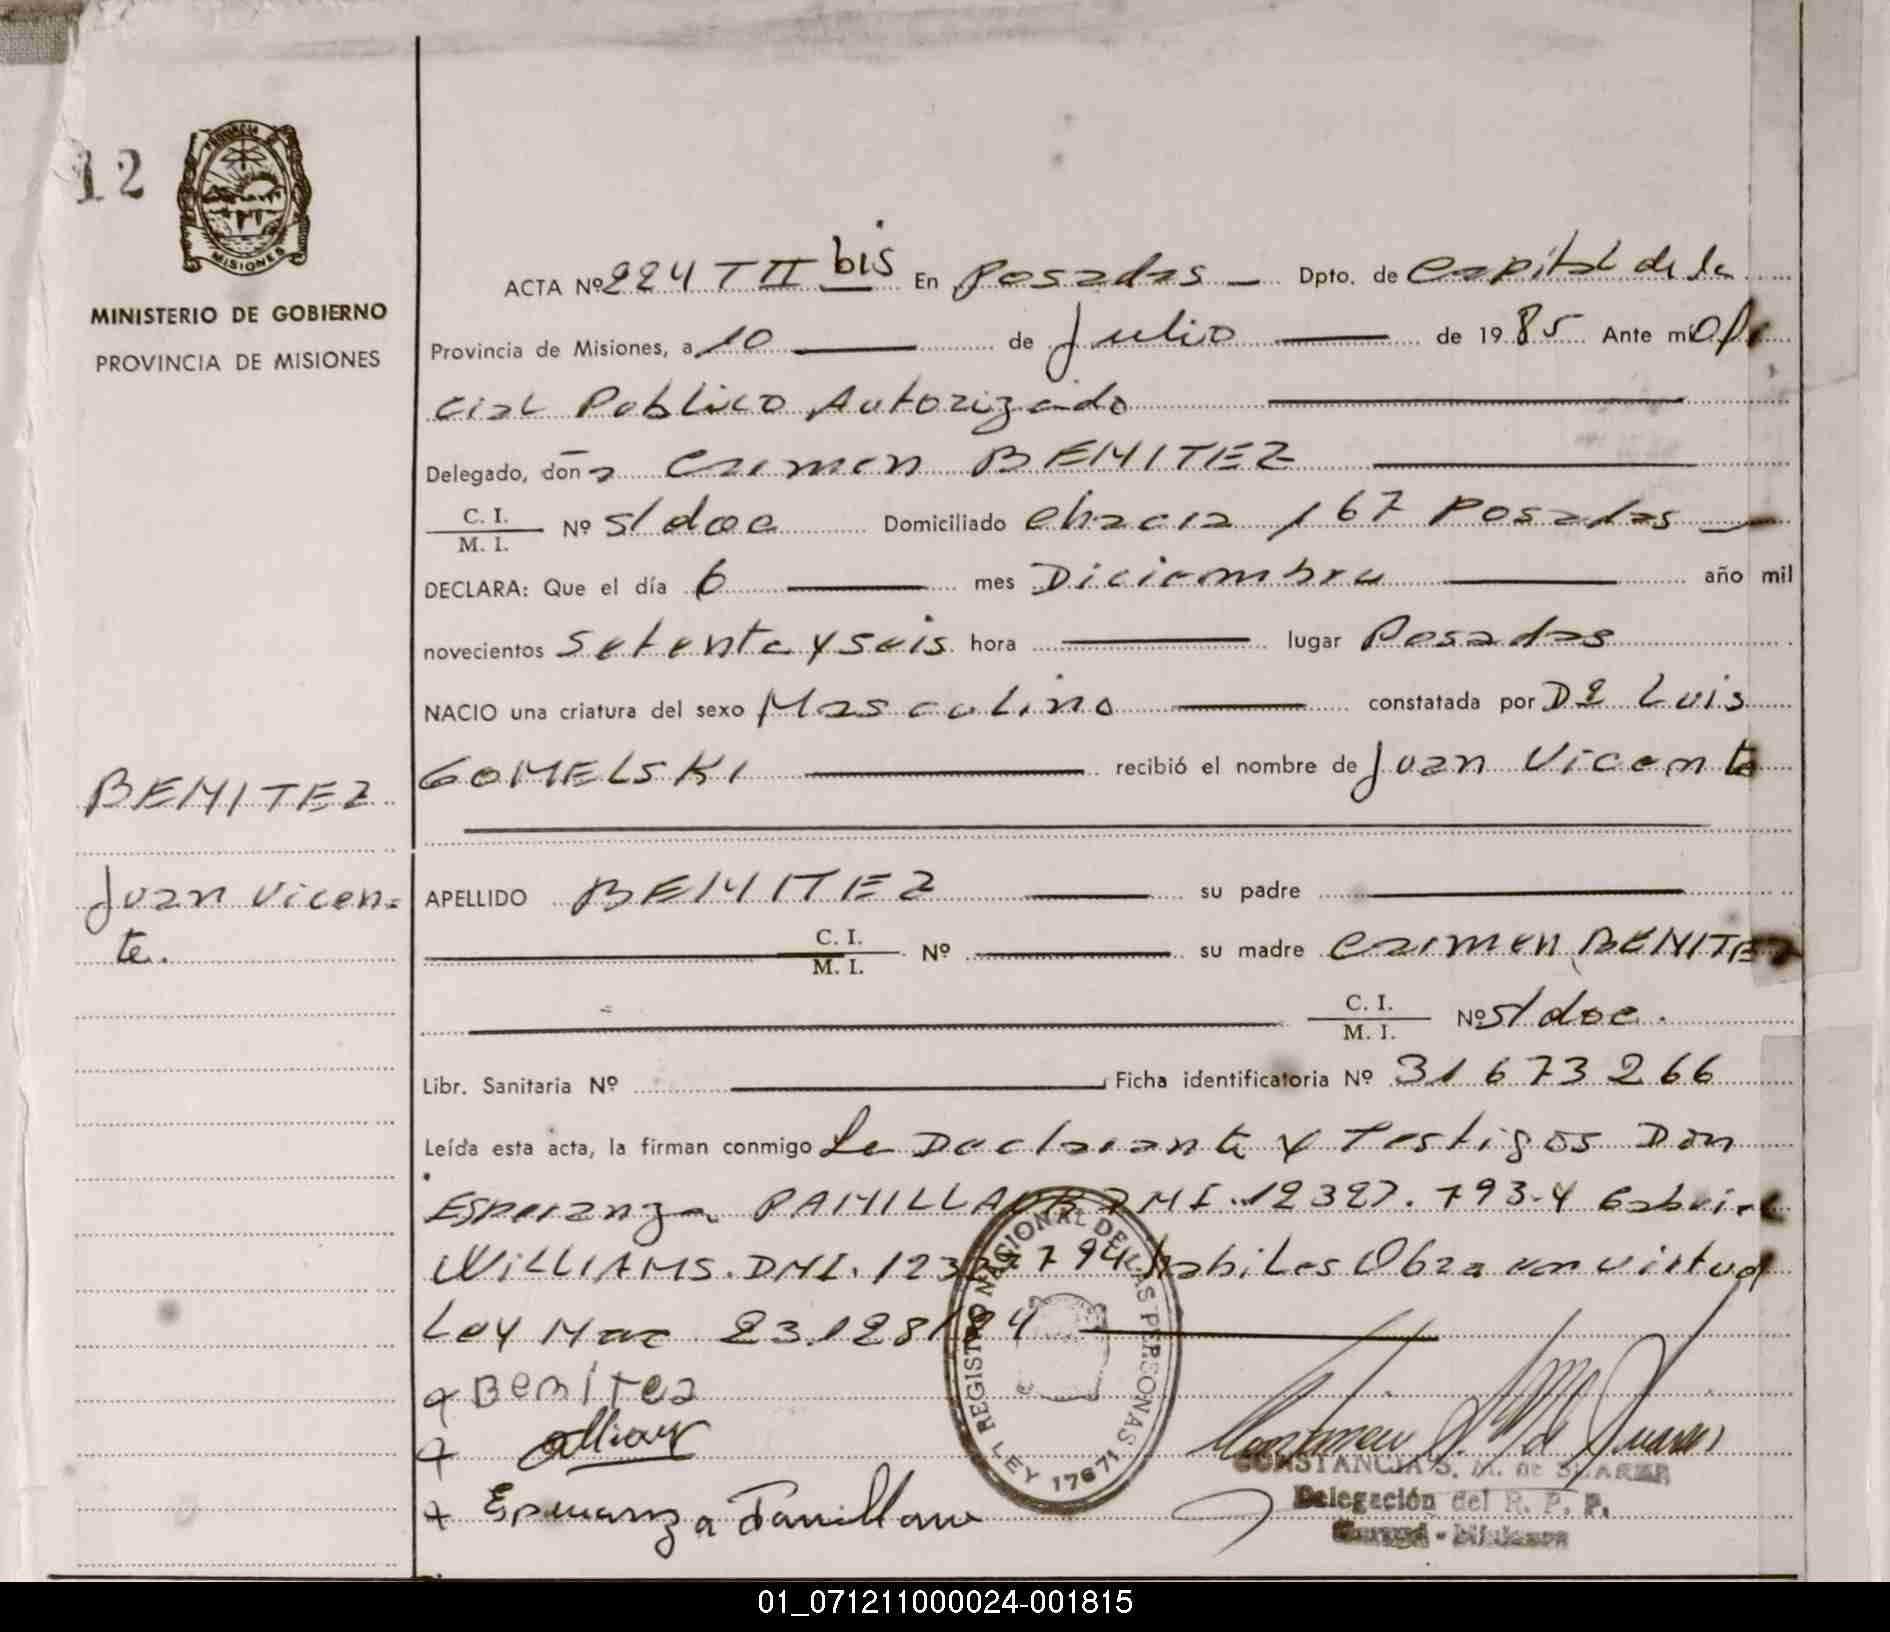 12
PROVINCIA DE
MISIONES
MINISTERIO DE GOBIERNO
PROVINCIA DE MISIONES
ACTA Nº 224 T II bis En Posadas Dpto. de Capital de la
Provincia de Misiones, a 10 de Julio de 1985 Ante mí Ofi
cial Publico Autorizado
Delegado, doña Carmen BENITEZ
C. I.
M. I. Nº s/doc Domiciliado Chacra 167 Posadas
DECLARA: Que el día 6 mes Diciembre año mil
novecientos setenta y seis hora lugar Posadas
NACIO una criatura del sexo Masculino constatada por Dº Luis
GOMELSKI recibió el nombre de Juan Vicente
BENITEZ
Juan Vicen=
te.
APELLIDO BENITEZ su padre
C. I.
M. I. Nº su madre Carmen BENITEZ
C. I.
M. I. Nº s/doc.
Libr. Sanitaria Nº Ficha identificatoria Nº 31673266
Leída esta acta, la firman conmigo La Declarante y Testigos Don
Esperanza DNI. 12327.793-y Gabriel
WILLIAMS. DNI. 12327794 habiles Obra en virtud
Ley Nac 23.128/84
Benitez
Esperanza
REGISTRO NACIONAL DE LAS PERSONAS
LEY 17671
CONSTANCIA S. M. de SUAREZ
Delegación del R. P. P.
Misiones
01_071211000024-001815